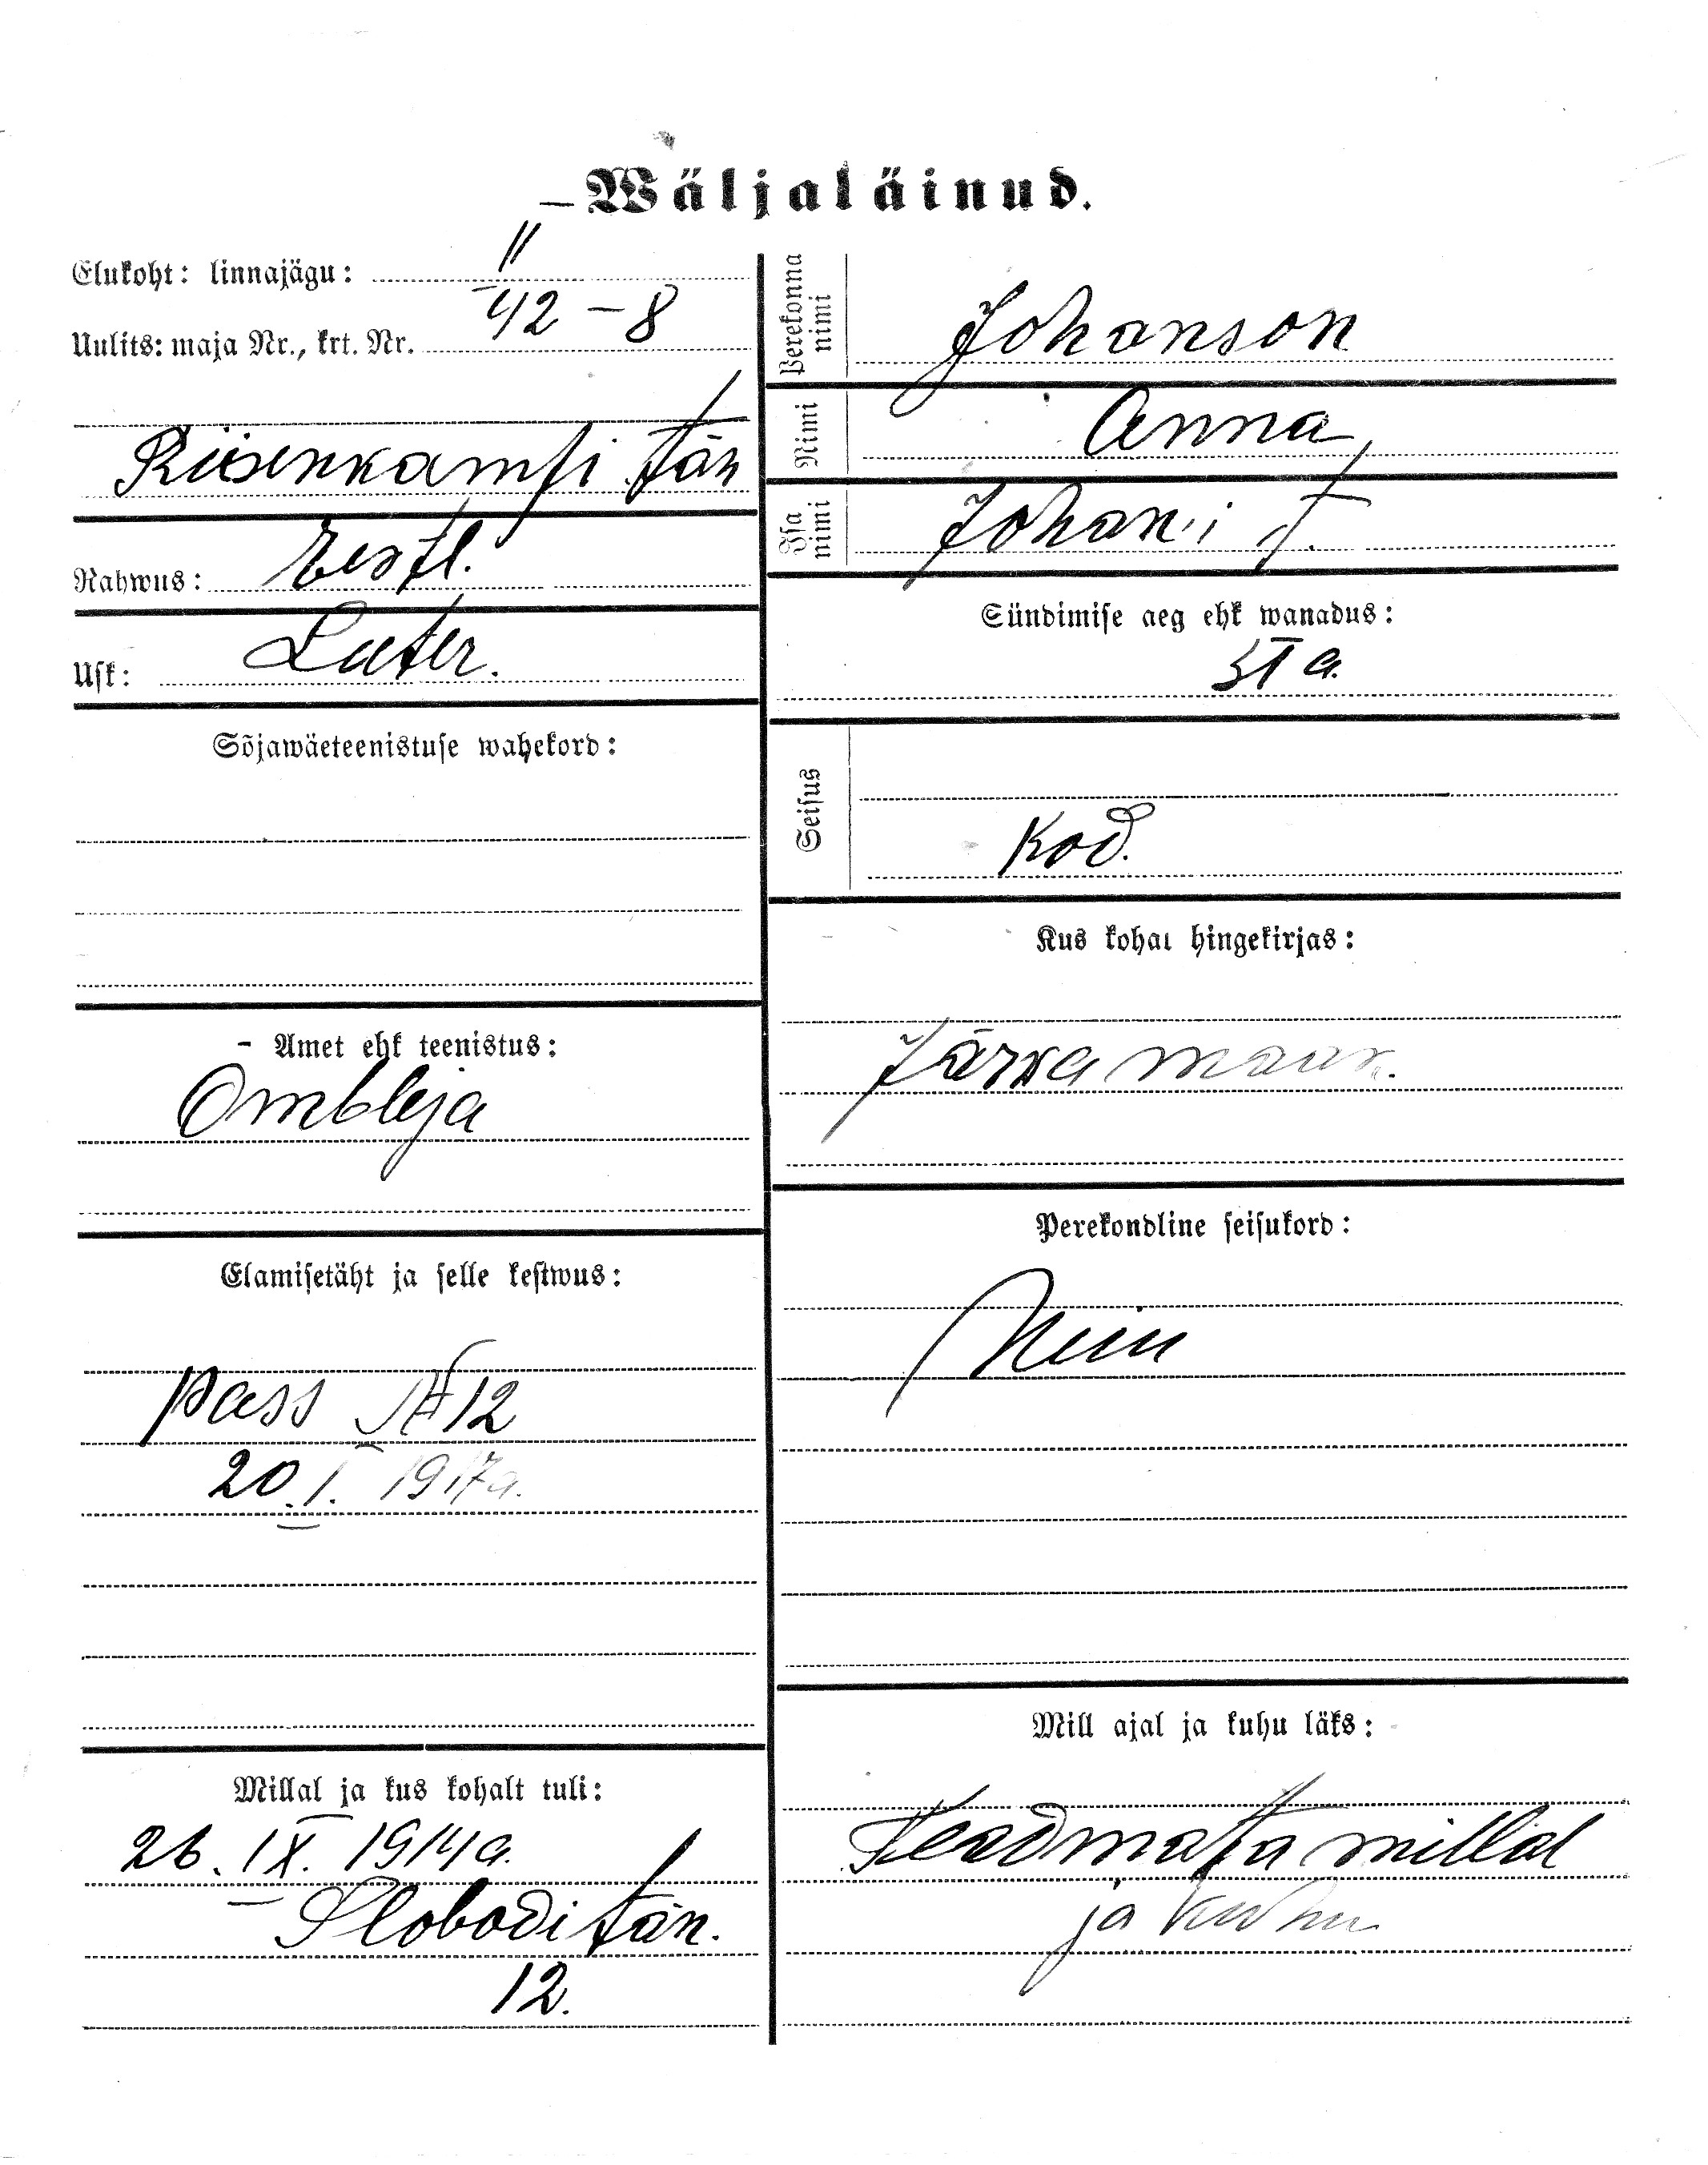 Wäljaläinud.
Elukoht: linnajägu: II
Uulits: maja Nr., krt. Nr. 42 – 8
Riisenkampfi tän
Rahwus: Eestl.
Usk: Luter.
Sõjawäeteenistuse wahekord:
Amet ehk teenistus:
Ombleja
Elamisetäht ja selle kestwus:
Pass № 12
20.I. 1917a.
Millal ja kus kohalt tuli:
26. IX. 1914a.
Slobodi tän.
12.
Perekonna nimi Johanson
Nimi Anna
Isa nimi Johani t.
Sündimise aeg ehk wanadus:
a.
Seisus
Kod.
Kus kohal hingekirjas:
Järva maak.
Perekondline seisukord:
Neiu
Mill ajal ja kuhu läks:
Teadmata millal
ja kuhu